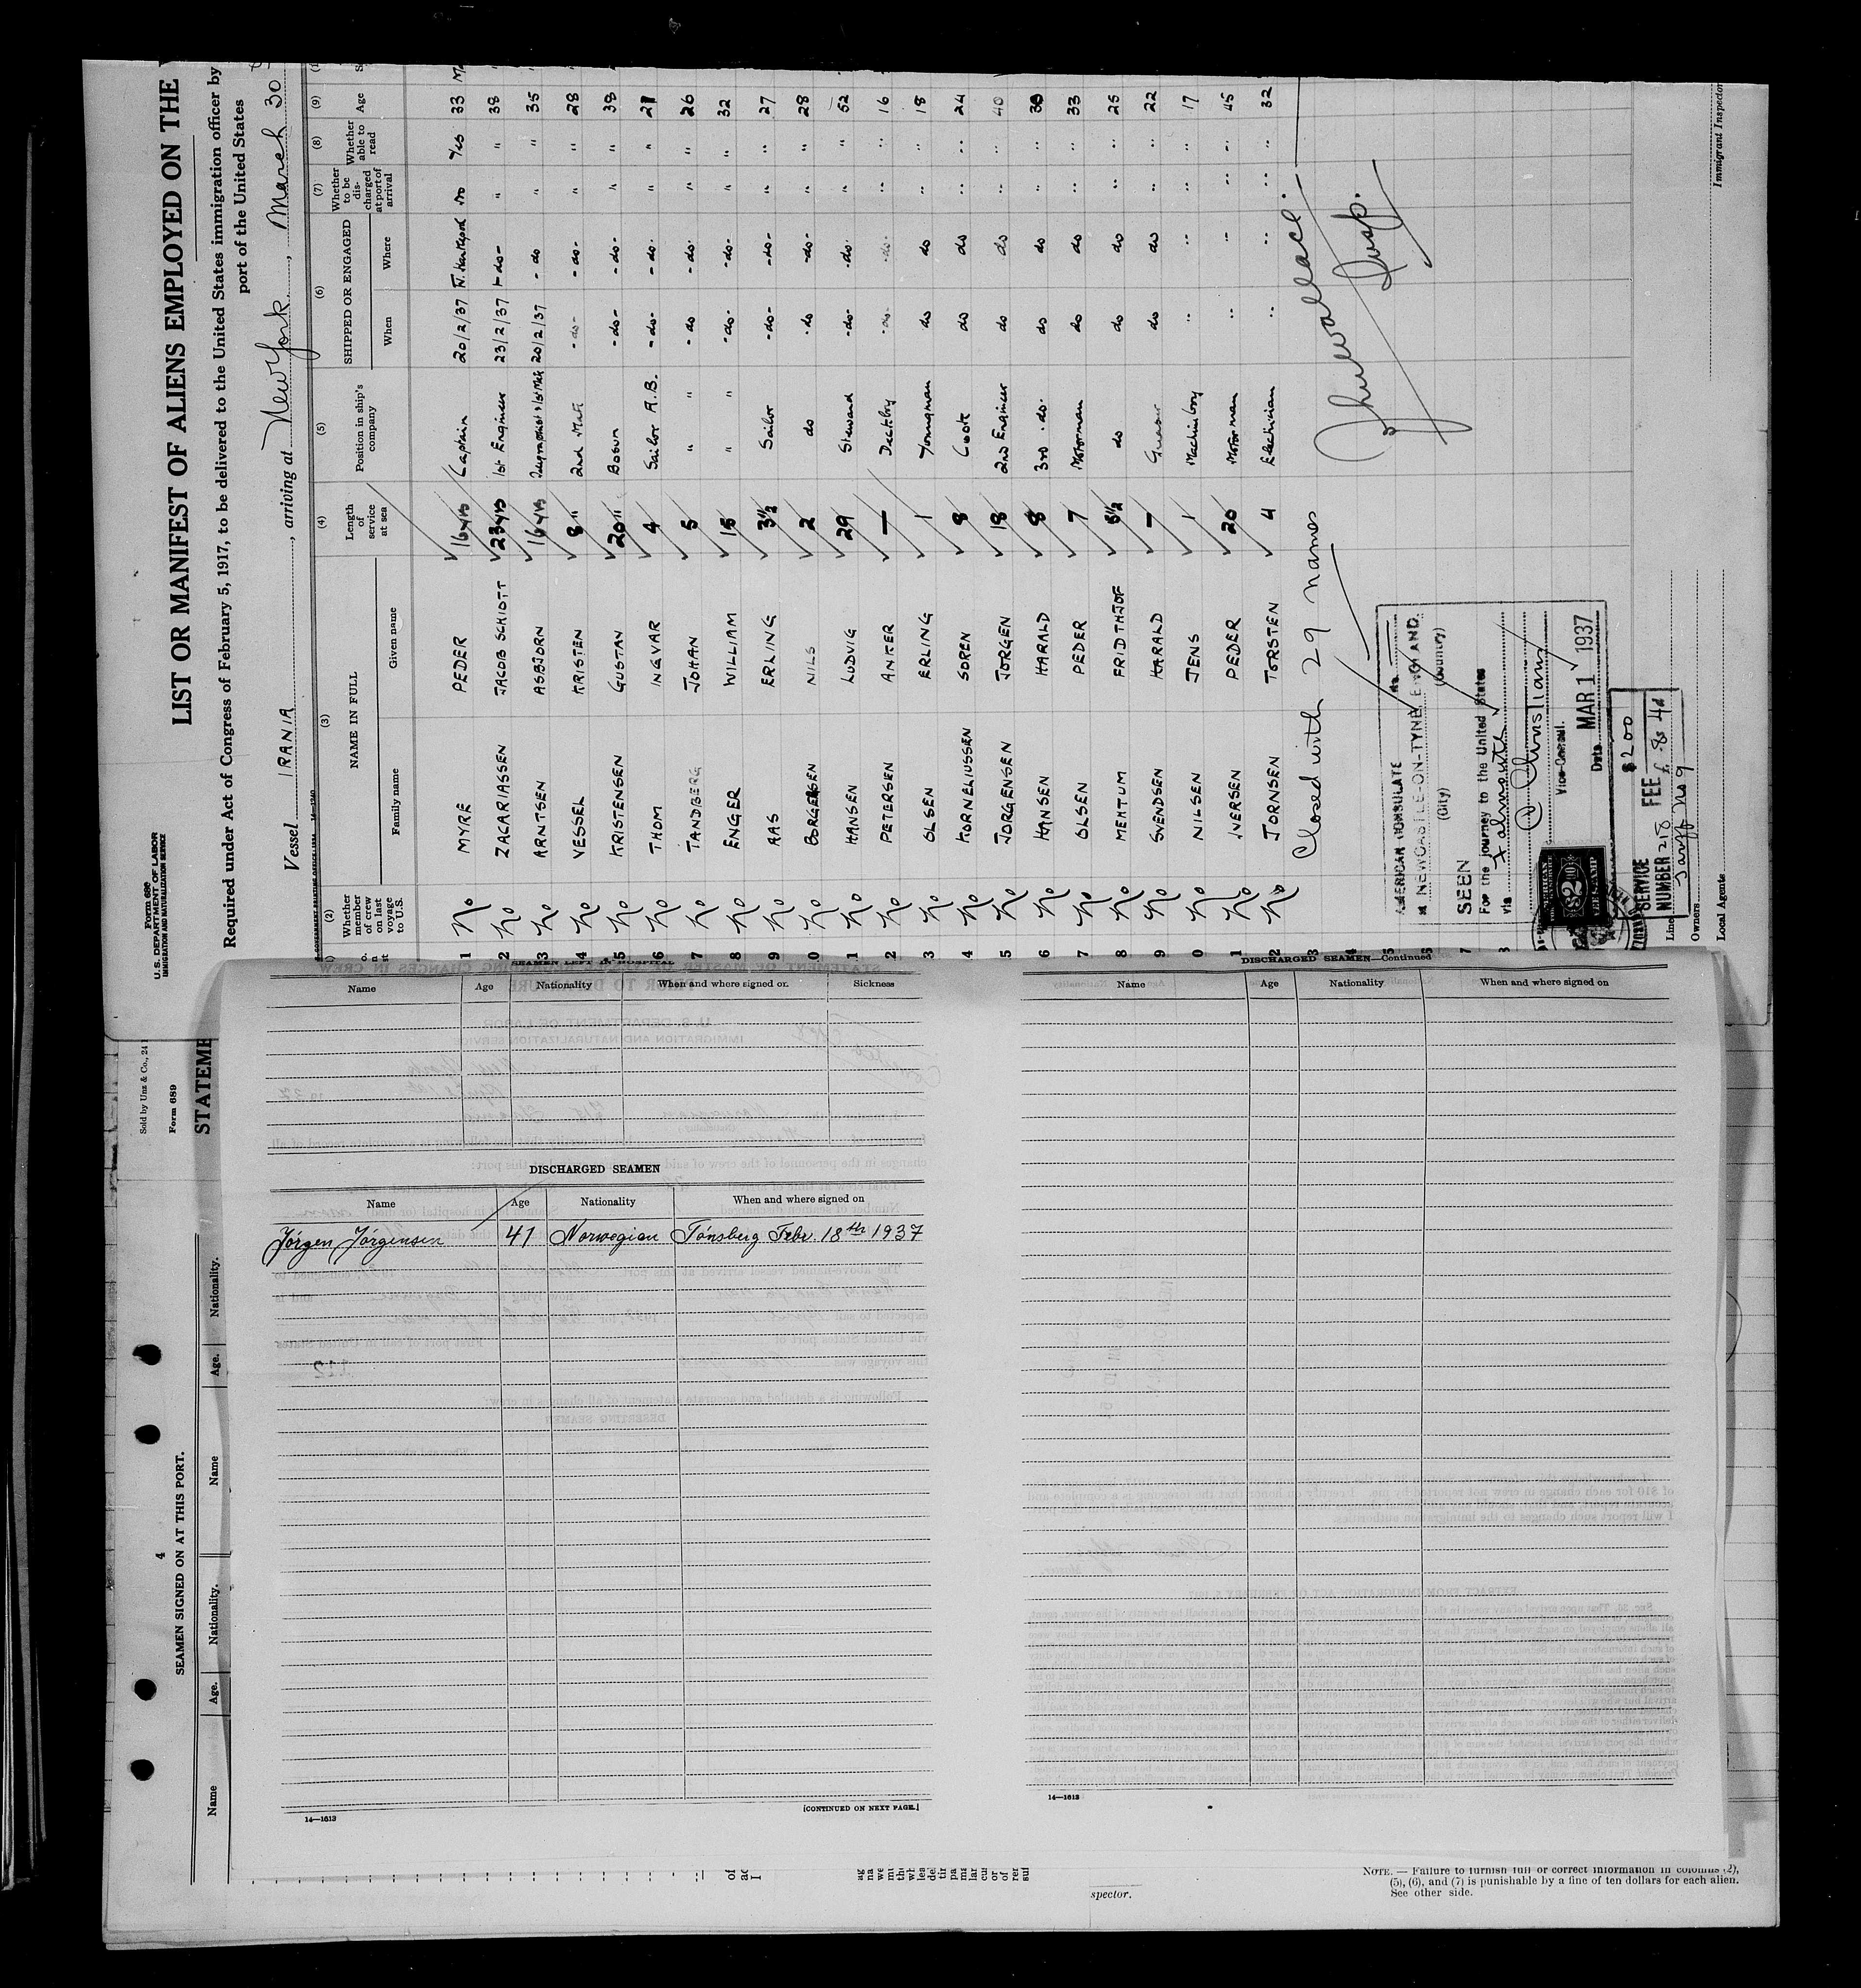 Form 680
U. S. DEPARTMENT OF LABOR
IMMIGRATION AND NATURALIZATION SERVICE
LIST OR MANIFEST OF ALIENS EMPLOYED ON THE
Required under Act of Congress of February 5, 1917, to be delivered to the United States immigration officer by
port of the United States
Vessel IRANIA, arriving at New York, March 30
(2) (3) (4) (5) (6) (7) (8) (9)
Whether member of crew on last voyage to U.S. NAME IN FULL Length of service at sea Position in ship's company SHIPPED OR ENGAGED Whether to be discharged at port of arrival Whether able to read Age
Family name Given name When Where
1 No MYRE PEDER 16 yrs Captain 20/2/37 no Yes 33
2 No ZACARIASSEN JACOB SCHIOTT 23 yrs 1st Engineer 23/2/37 - do - " " 38
3 No ARNTSEN ASBJORN 16 yrs 20/2/37 - do " " 35
4 No VESSEL KRISTEN 8 " 2nd Mate - do - - do - " " 28
5 No KRISTENSEN GUSTAV 20 " Bosun - do - - do - " " 38
6 No THOM INGVAR 4 Sailor A.B. - do - - do. " "
7 No TANDBERG JOHAN 5 " - do - do. " " 26
8 No ENGER WILLIAM 15 " - do - - do - " " 32
9 No AAS ERLING 3½ Sailor - do - - do - " " 27
0 No BORGERSEN NILS 2 do - do - do - " " 28
1 No HANSEN LUDVIG 29 Steward - do - - do. " " 52
2 No PETERSEN ANKER — Deckboy - do - - do - " " 16
3 No OLSEN ERLING 1 Youngman do do " " 18
4 No KORNELIUSSEN SOREN 8 Cook do do " " 24
5 No JORGENSEN JORGEN 18 2nd Engineer do do " " 40
6 No HANSEN HARALD 8 3rd . do. do do " " 30
7 No OLSEN PEDER 7 Motorman do do " " 33
8 No MEHTUM FRIDTHJOF 5½ do do do " " 25
9 No SVENDSEN HARALD — Greaser do do " " 22
0 No NILSEN JENS 1 Machinboy " " " " 17
1 No IVERSEN PEDER 20 Motorman " " " " 45
2 No JORNSEN TORSTEN 4 Electrician " " " " 32
3 Closed with 29 names
4
5
6
7
8
Insp.
AMERICAN CONSULATE
NEWCASTLE-ON-TYNE ENGLAND.
(City) (Country)
SEEN
For the journey to the United States
via Falmouth
Vice Consul.
Date MAR 1 1937
$2.00
SERVICE
NUMBER 218 FEE
Tariff No 9
Line
Owners
Local Agents
Immigrant Inspector
SEAMEN LEFT IN HOSPITAL
Name Age Nationality When and where signed on. Sickness
DISCHARGED SEAMEN
Name Age Nationality When and where signed on
Jörgen Jörgensen 41 Norwegian Tönsberg Febr. 18th 1937
14—1613
[CONTINUED ON NEXT PAGE.]
DISCHARGED SEAMEN—Continued
Name Age Nationality When and where signed on
14—1613
Sold by Unz & Co., 24
Form 689
STATEME
4
SEAMEN SIGNED ON AT THIS PORT.
Name Age. Nationality. Name Age. Nationality.
spector.
NOTE. — Failure to furnish full or correct information in columns (2),
(5), (6), and (7) is punishable by a fine of ten dollars for each alien.
See other side.